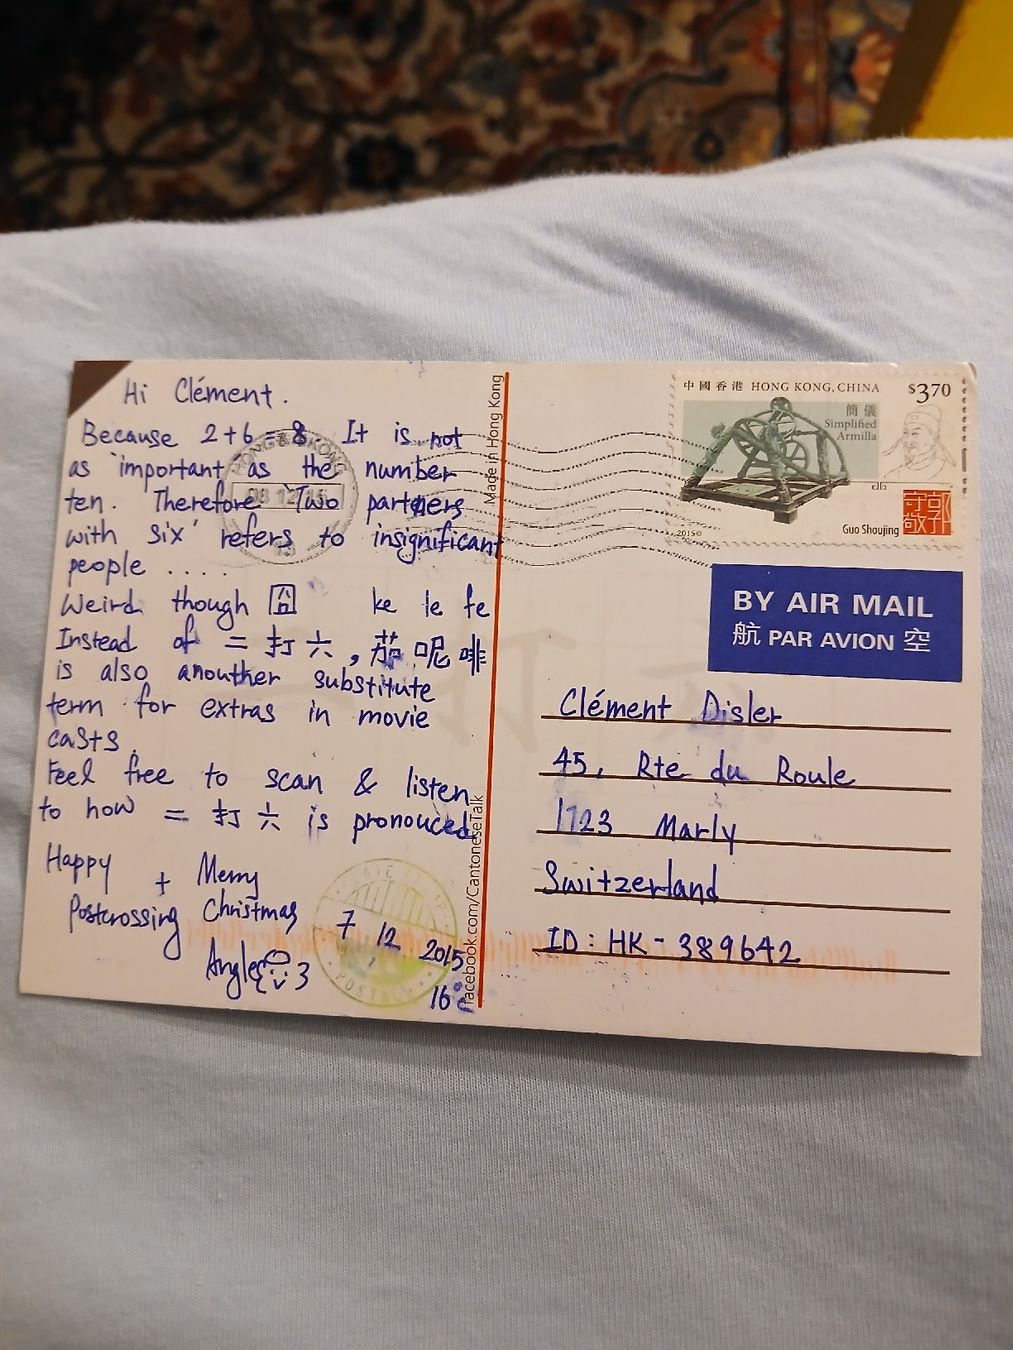 Hi Clément.
Because 2+6=8. It is not
as important as the number
ten. Therefore 'Two partners
with six' refers to insignificant
people .....
Weird though 囧 ke le fe
Instead of 二打六, 茄呢啡
is also anouther substitute
term for extras in movie
casts.
Feel free to scan & listen
to how 二打六 is pronouced
Happy + Merry
Postcrossing Christmas
7 12 2015
16°c
Made in Hong Kong
facebook.com/CantoneseTalk
中國香港 HONG KONG, CHINA
$3.70
簡儀
Simplified
Armilla
Guo Shoujing
2015
BY AIR MAIL
航 PAR AVION 空
Clément Disler
45, Rte du Roule
1723 Marly
Switzerland
ID: HK-389642